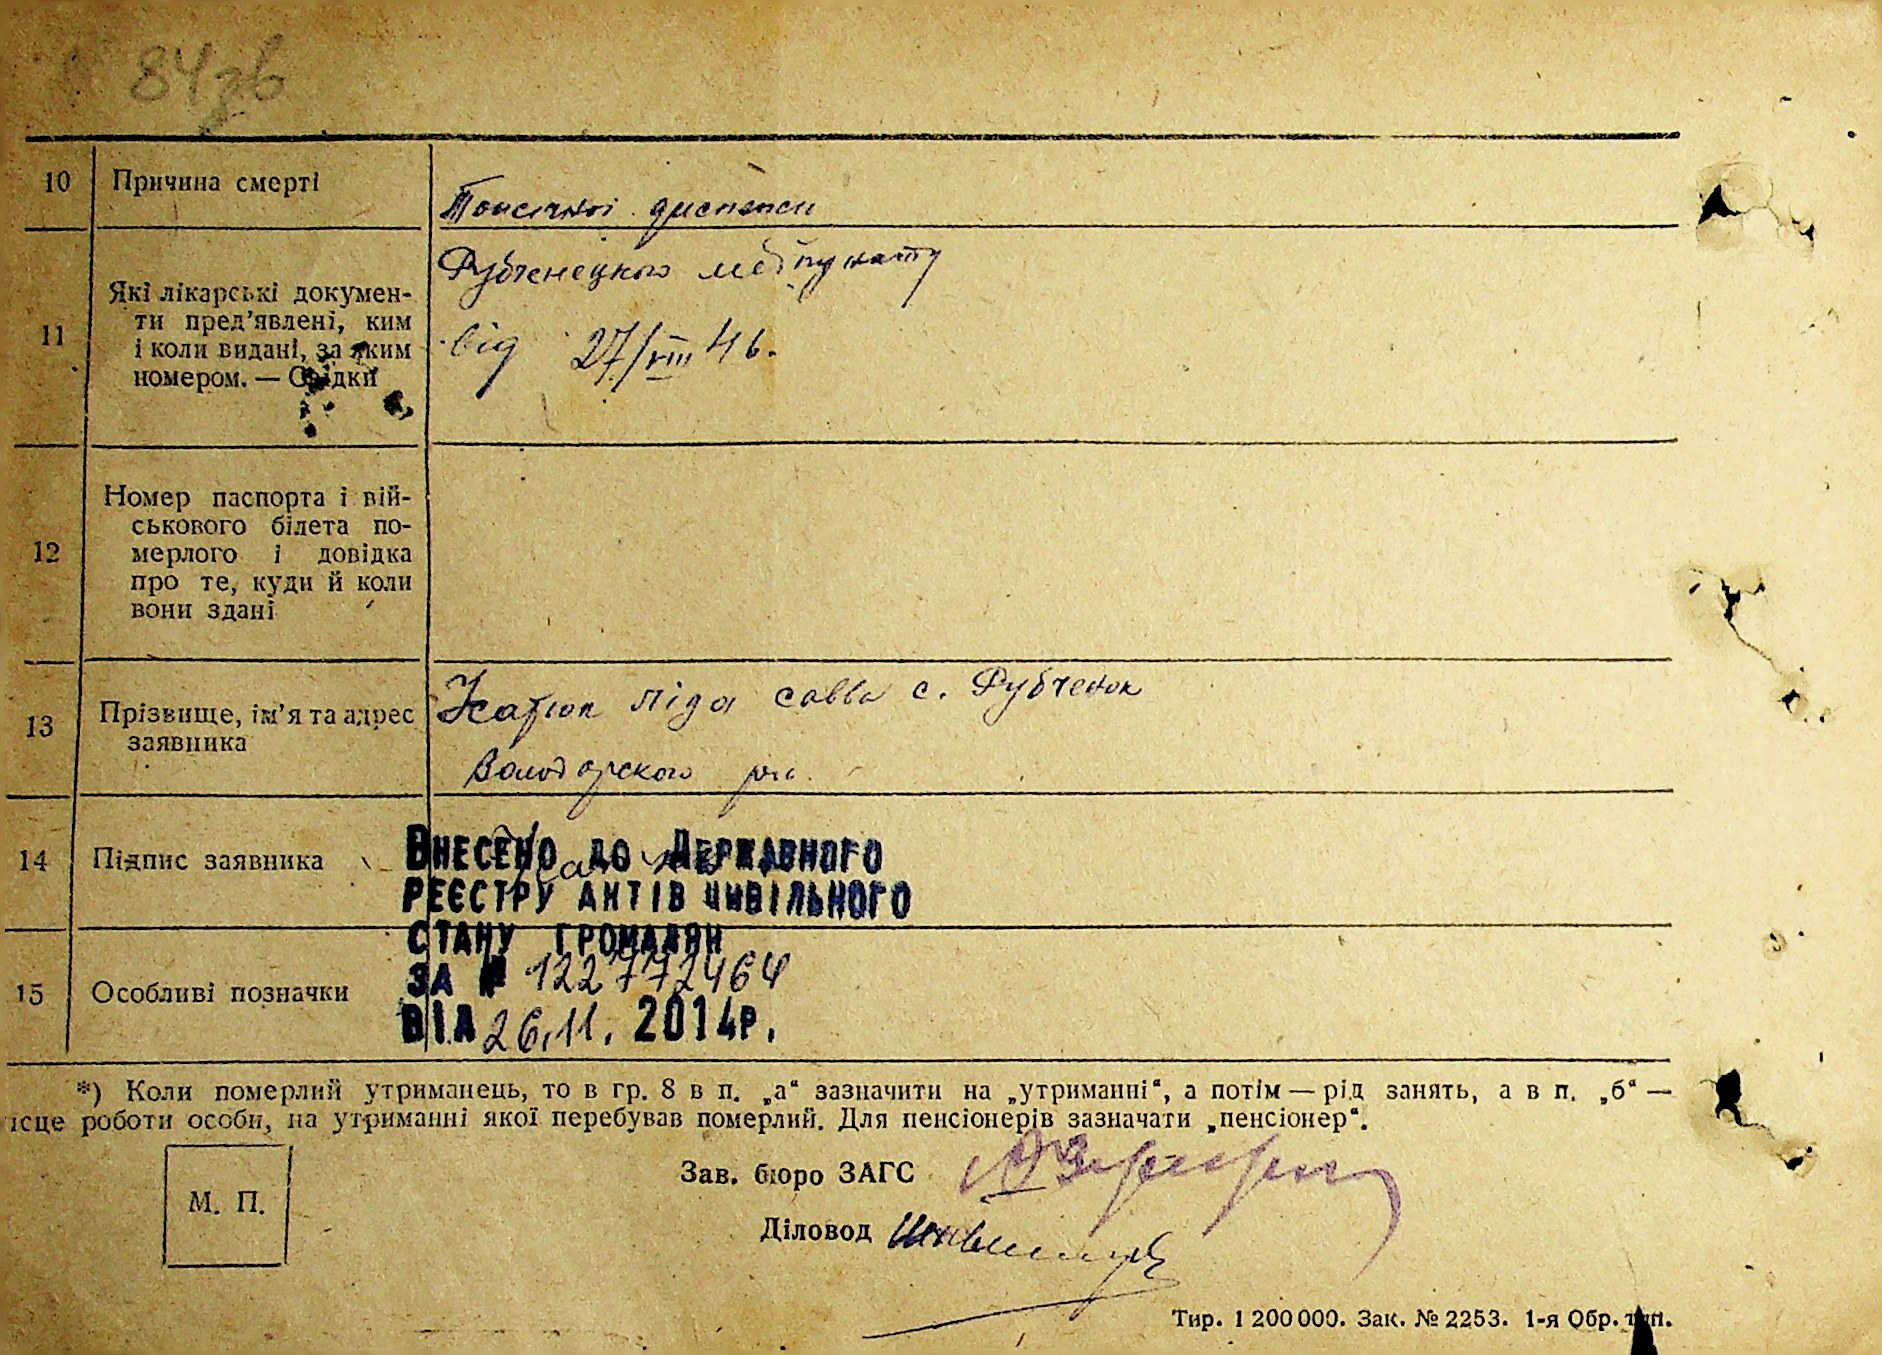 84зв
10 Причина смерті
Токсичної диспепси
11 Які лікарські докумен-
ти пред'явлені, ким
і коли видані, за яким
номером. — Свідки
Рубченецкого медпункту
від 27/VIII 46.
12 Номер паспорта і вій-
ськового білета по-
мерлого і довідка
про те, куди й коли
вони здані
13 Прізвище, ім'я та адрес
заявника
ліда савва с. Рубченок
Володарского р-на
14 Підпис заявника
Внесено до Державного
реєстру актів цивільного
стану громадян
15 Особливі позначки
за № 122772464
від 26.11. 2014р.
*) Коли померлий утриманець, то в гр. 8 в п. „а“ зазначити на „утриманні“, а потім — рід занять, а в п. „б“ —
ісце роботи особи, на утриманні якої перебував померлий. Для пенсіонерів зазначати „пенсіонер“.
М. П.
Зав. бюро ЗАГС
Діловод
Тир. 1 200 000. Зак. № 2253. 1-я Обр. тип.